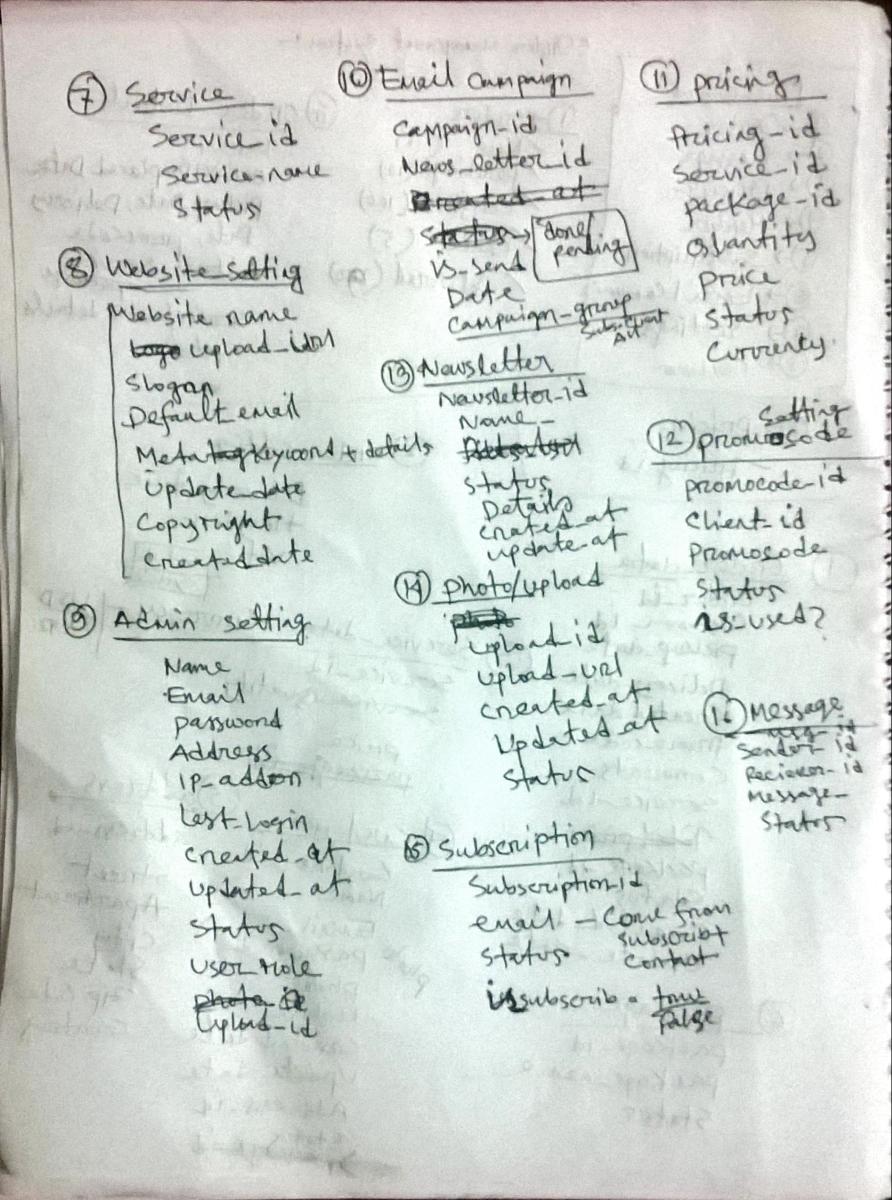 ⑦ Service
Service_id
Service-name
Status
⑧ Website setting
Website name
Logo upload_Url
Slogan
Default email
Meta tag Keyword + details
Update_date
Copyright
Created date
⑨ Admin setting
Name
Email
password
Address
IP_addon
Last_Login
Created_at
Updated_at
Status
User role
photo
Upload_id
⑩ Email Campaign
Campaign-id
News_letter_id
Created_at
Status → done/
pending
is_send
Date
Campaign-group
⑬ Newsletter
Newsletter_id
Name_
Status
Details
created_at
update_at
⑭ photo/upload
photo
Upload_id
Upload_url
created_at
Updated_at
Status
⑮ Subscription
Subscription_id
email - Come from
subscribt
Contact
Status
is subscrib = true
False
⑪ pricing
Pricing-id
Service_id
package-id
Quantity
Price
Status
Currenty
Setting
⑫ promocode
promocode-id
Client-id
Promosode
Status
is_used?
⑯ Message
msg_id
Sender_id
Reciever-id
Message_
Status